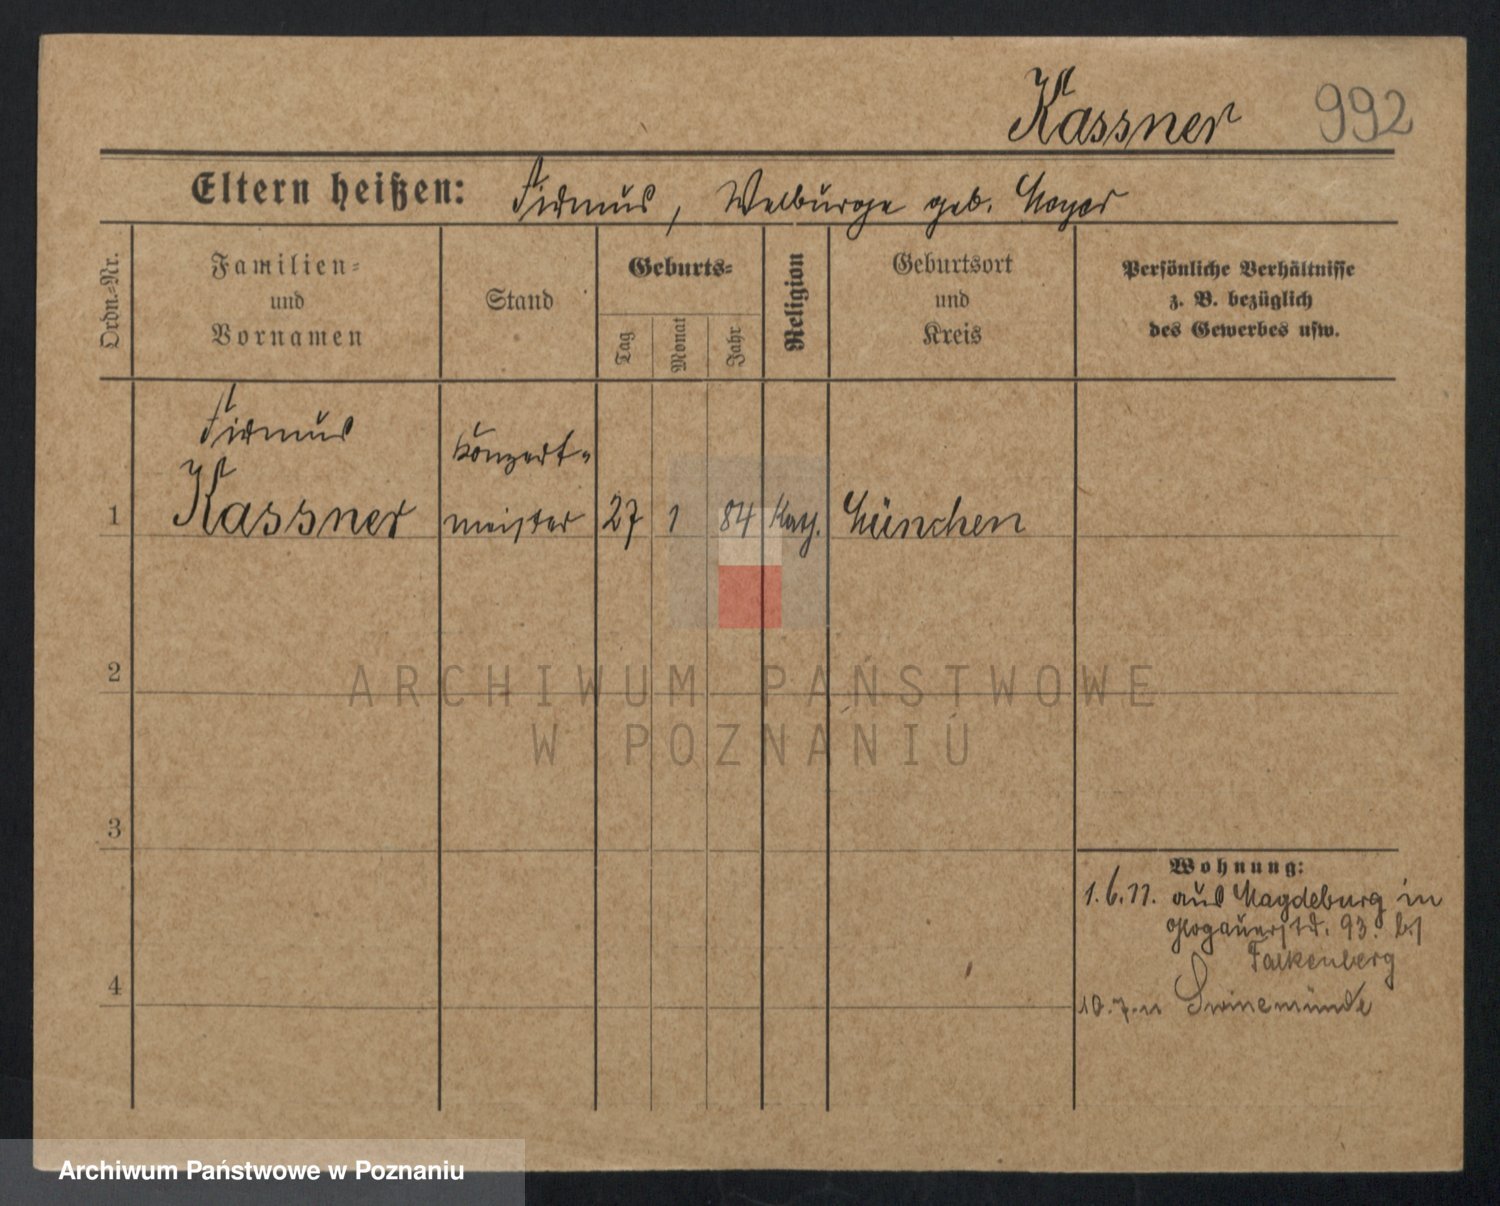 Kassner 992
Eltern heißen: Firmus, Walburga geb. Mayer
Ordn.-Nr.
Familien-
und
Vornamen
Stand
Geburts-
Tag
Monat
Jahr
Religion
Geburtsort
und
Kreis
Persönliche Verhältnisse
z. B. bezüglich
des Gewerbes usw.
Firmus
Konzert-
1 Kassner meister 27 1 84 Kath. München
2
ARCHIWUM PAŃSTWOWE
W POZNANIU
3
Wohnung:
1.6.11. aus Magdeburg in
Glogauerstr. 93. b/
Falkenberg
4
10.7.11 Swinemünde
Archiwum Państwowe w Poznaniu